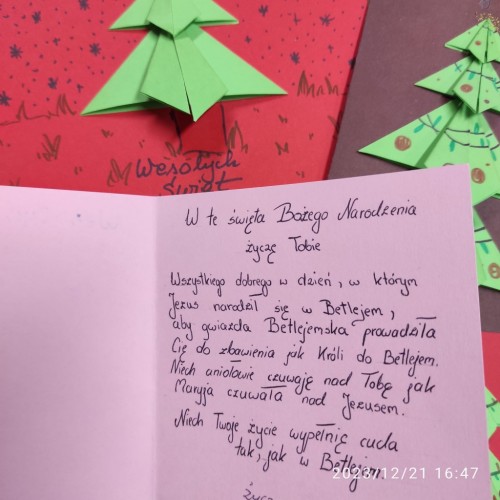 Wesołych
Świąt
W te święta Bożego Narodzenia
życzę Tobie
Wszystkiego dobrego w dzień, w którym
Jezus narodził się w Betlejem,
aby gwiazda Betlejemska prowadziła
Cię do zbawienia jak Króli do Betlejem.
Niech aniołowie czuwają nad Tobą jak
Maryja czuwała nad Jezusem.
Niech Twoje życie wypełnię cuda
tak, jak w Betlejem
2023/12/21 16:47